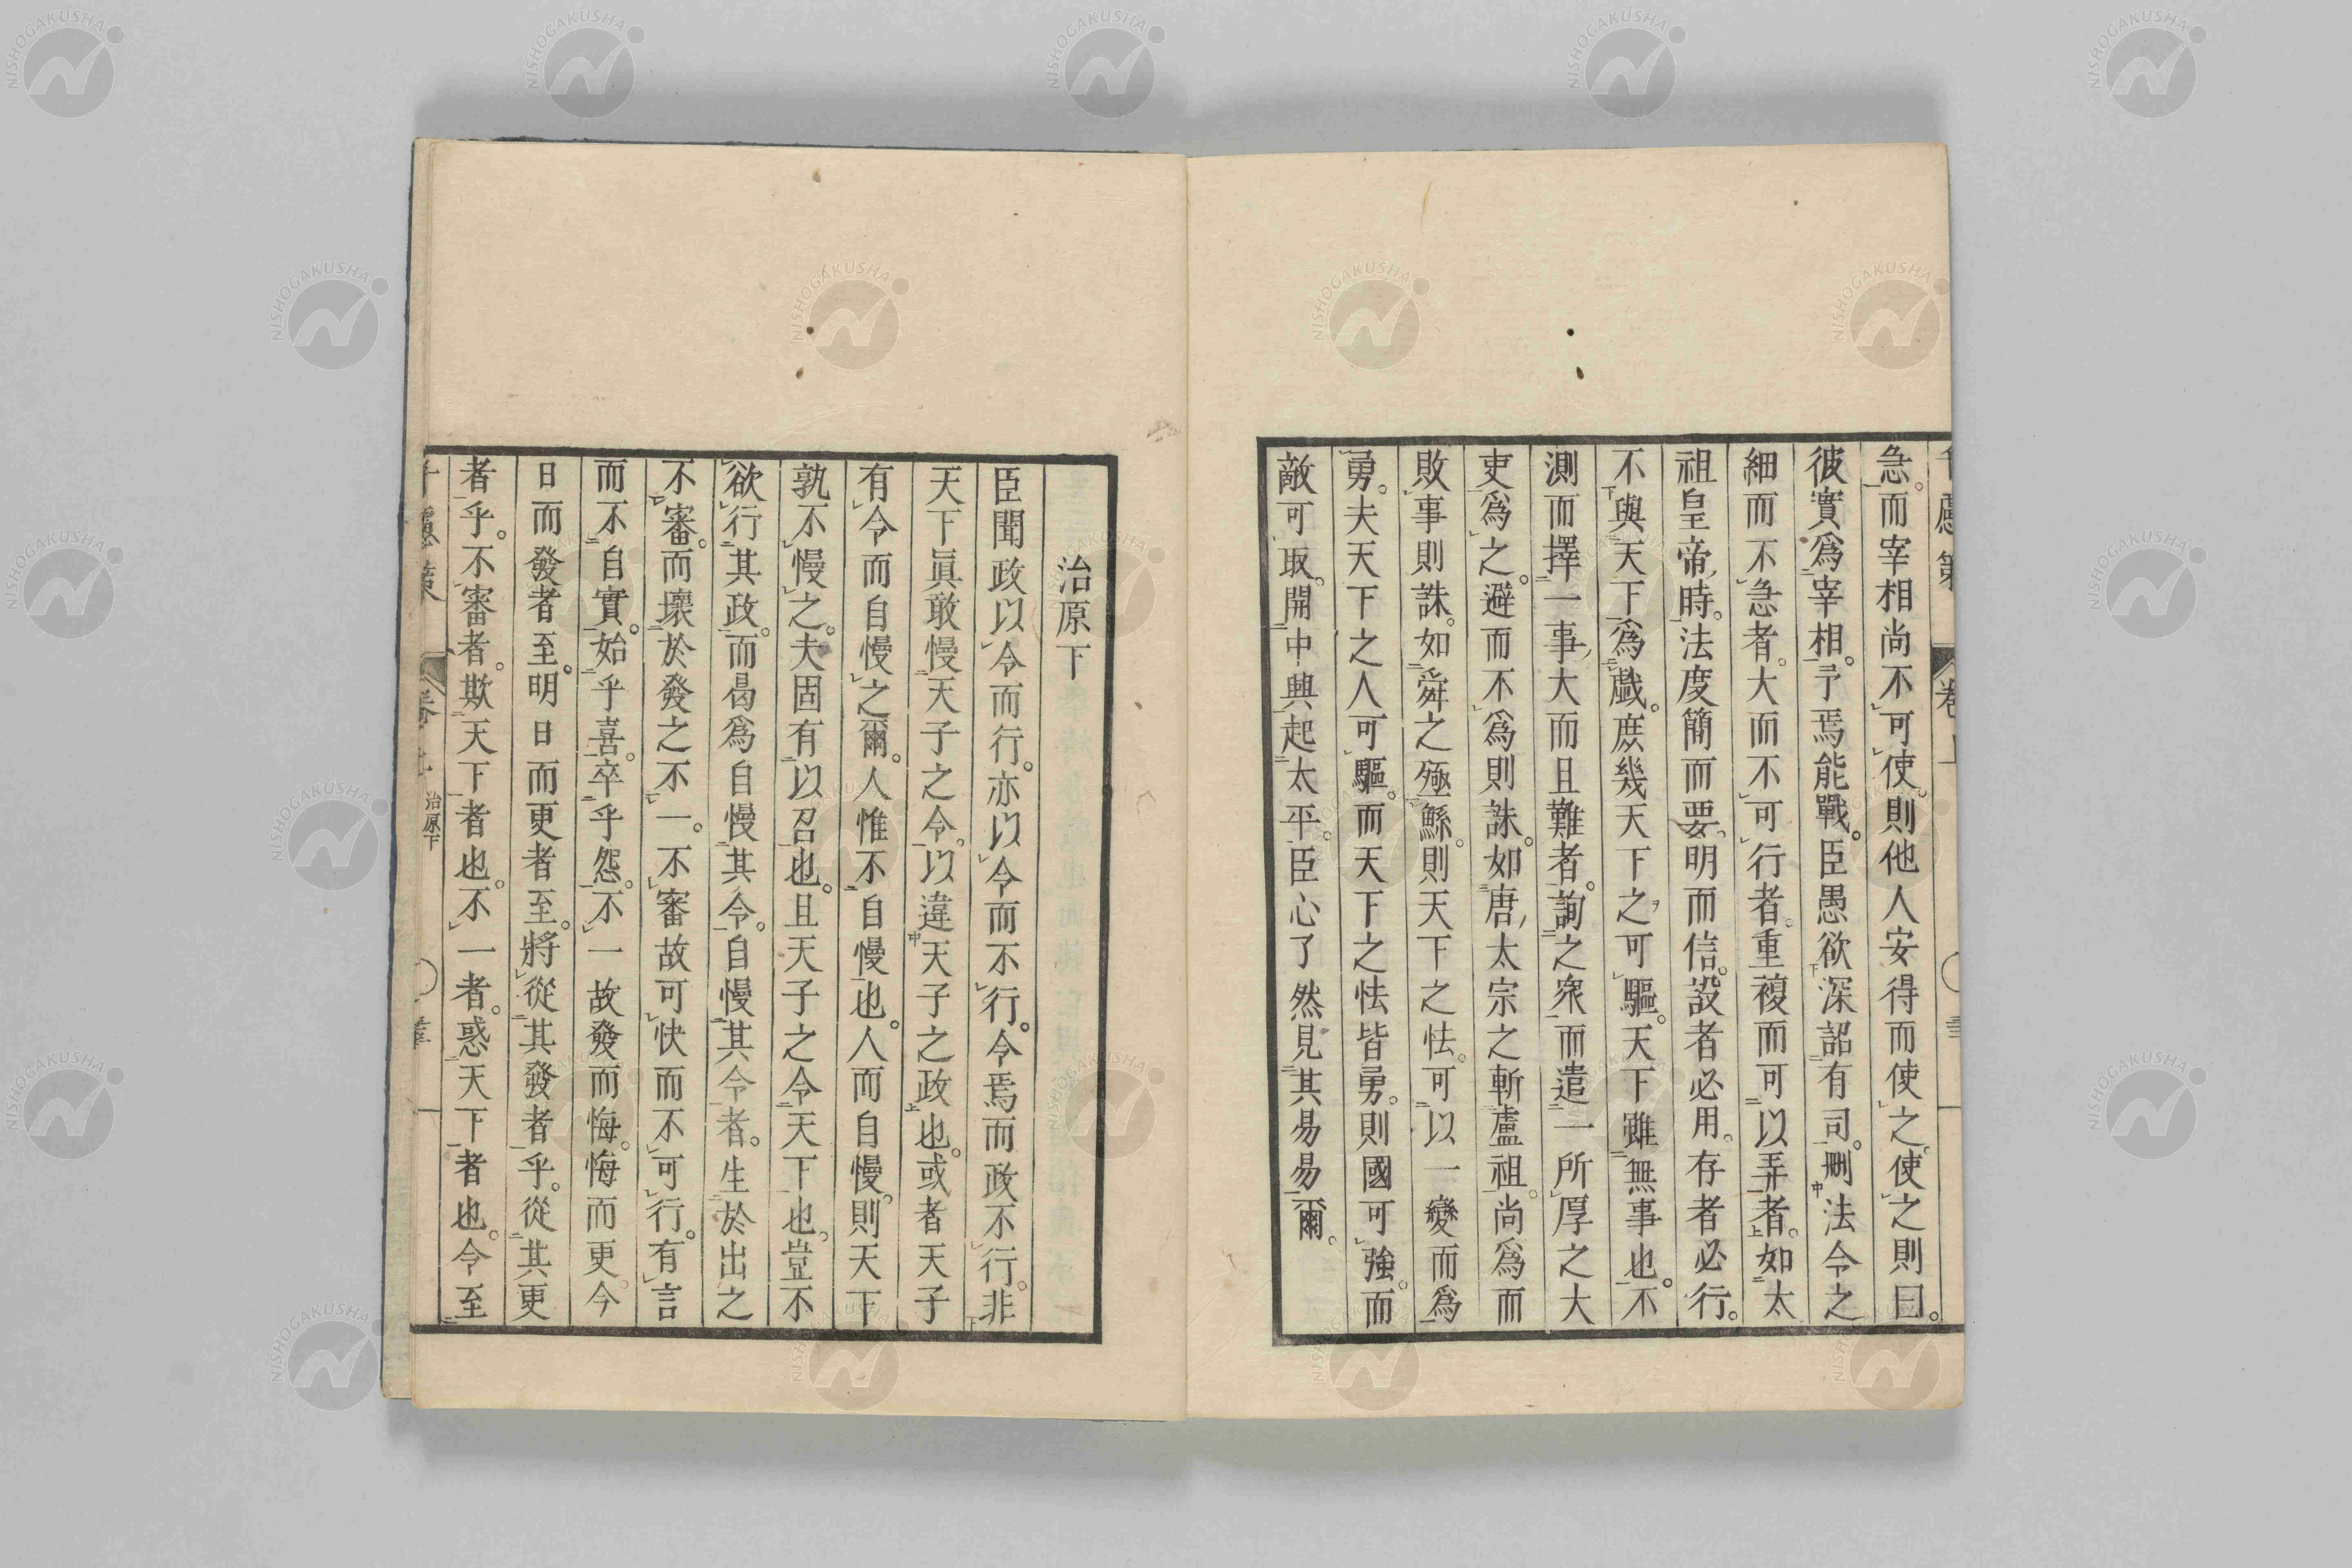 急。而宰相尚不可使。則他人安得而使之。使之則曰。
彼實爲宰相。予焉能戰。臣愚欲深詔有司。刪法令之
細而不急者。大而不可行者。重複而可以弄者。如太
祖皇帝時。法度簡而要。明而信。設者必用。存者必行。
不與天下爲戲。庶幾天下之可驅。天下雖無事也。不
測而擇一事大而且難者。詢之衆而遣一所厚之大
吏爲之。避而不爲則誅。如唐太宗之斬盧祖。尚爲而
敗事則誅。如舜之殛鯀。則天下之怯。可以一變而爲
勇。夫天下之人可驅。而天下之怯皆勇。則國可強。而
敵可取。開中興起太平。臣心了然見其易易爾。
治原下
臣聞政以令而行。亦以令而不行。令焉而政不行。非
天下眞敢慢天子之令。以違天子之政也。或者天子
有令而自慢之爾。人惟不自慢也。人而自慢。則天下
孰不慢之。夫固有以召也。且天子之令天下也。豈不
欲行其政。而曷爲自慢其令。自慢其令者。生於出之
不審。而壞於發之不一。不審故可快而不可行。有言
而不自實。始乎喜。卒乎怨。不一故發而悔。悔而更。今
日而發者至。明日而更者至。將從其發者乎。從其更
者乎。不審者。欺天下者也。不一者。惑天下者也。令至
治原下
NISHOGAKUSHA